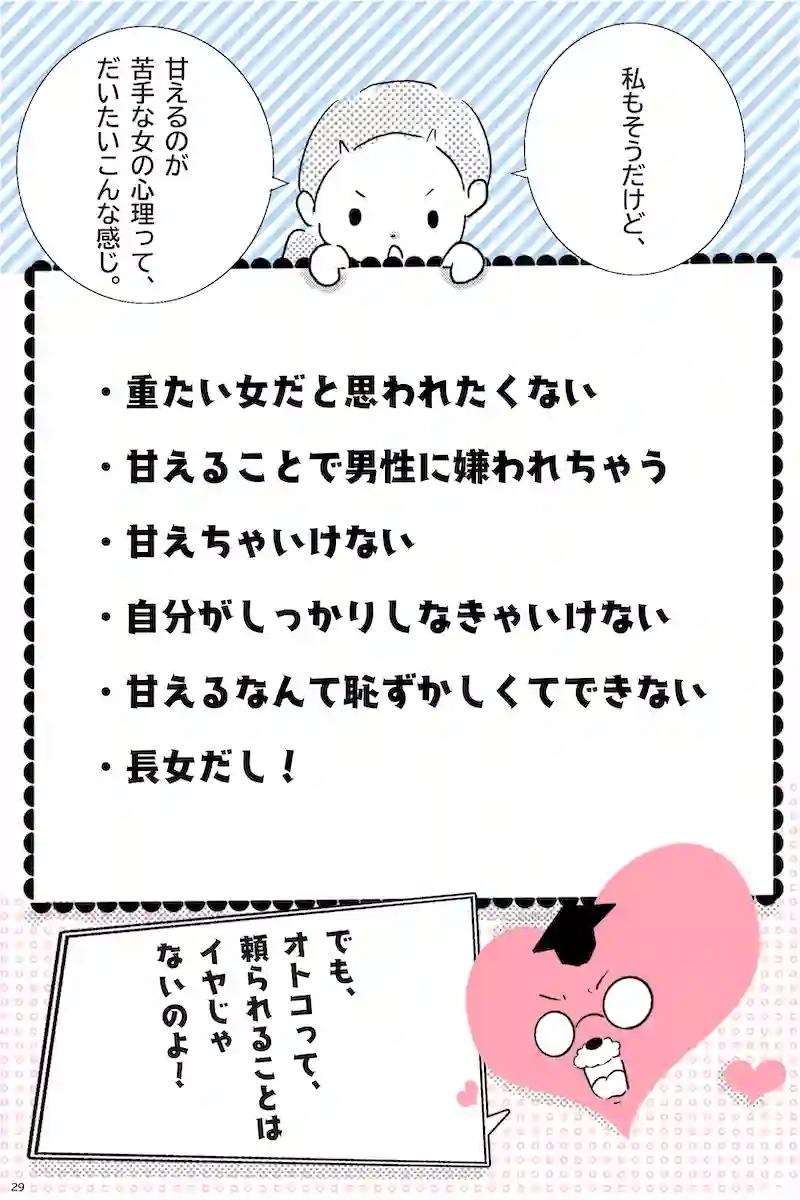 私もそうだけど、
甘えるのが
苦手な女の心理って、
だいたいこんな感じ。
・重たい女だと思われたくない
・甘えることで男性に嫌われちゃう
・甘えちゃいけない
・自分がしっかりしなきゃいけない
・甘えるなんて恥ずかしくてできない
・長女だし！
でも、
オトコって、
頼られることは
イヤじゃ
ないのよ！
29